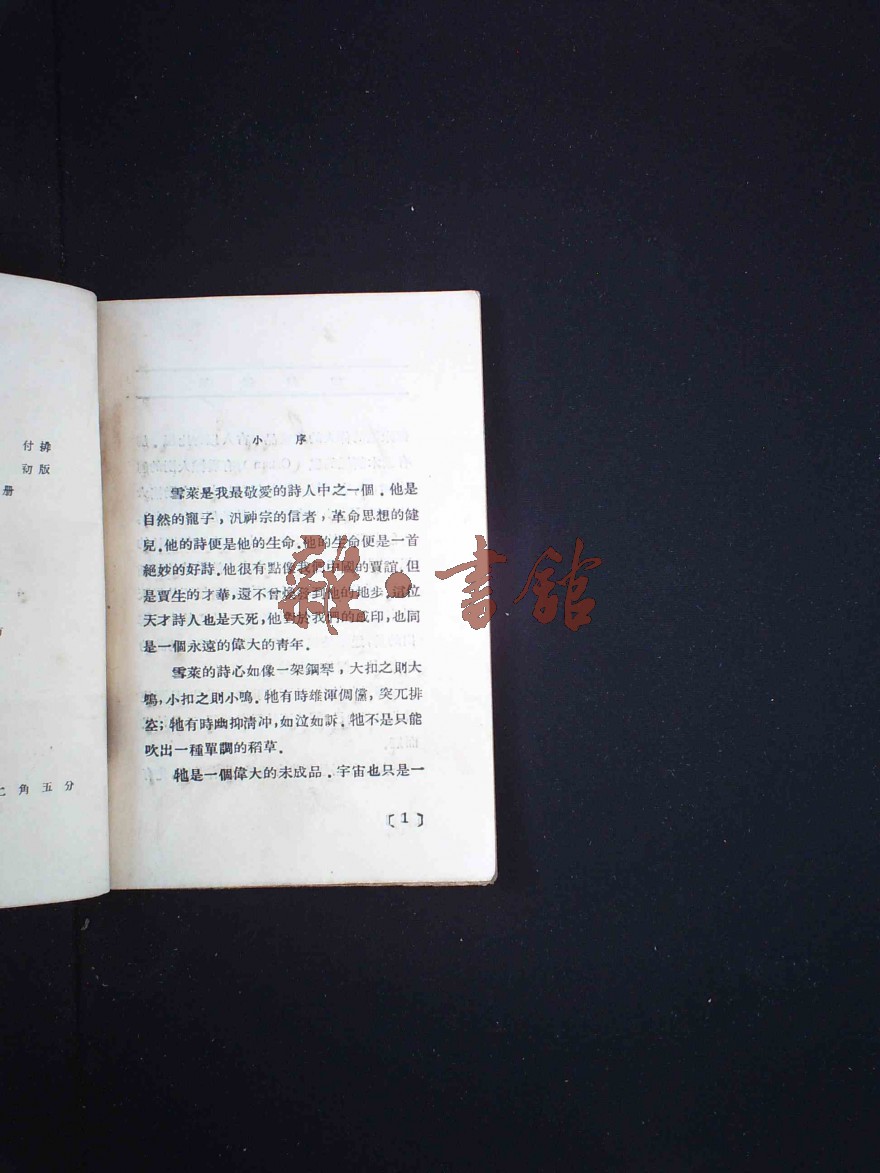 付排
初版
册
二角五分
小序
雪萊是我最敬愛的詩人中之一個．他是
自然的寵子，汎神宗的信者，革命思想的健
兒．他的詩便是他的生命．他的生命便是一首
絕妙的好詩．他很有點像我們中國的賈誼．但
是賈生的才華，還不曾焕發到他的地步．這位
天才詩人也是夭死，他對於我們的感印，也同
是一個永遠的偉大的青年．
雪萊的詩心如像一架鋼琴，大扣之則大
鳴，小扣之則小鳴．牠有時雄渾倜儻，突兀排
空；牠有時幽抑清冲，如泣如訴．牠不是只能
吹出一種單調的稻草．
牠是一個偉大的未成品．宇宙也只是一
〔1〕
雜·書館